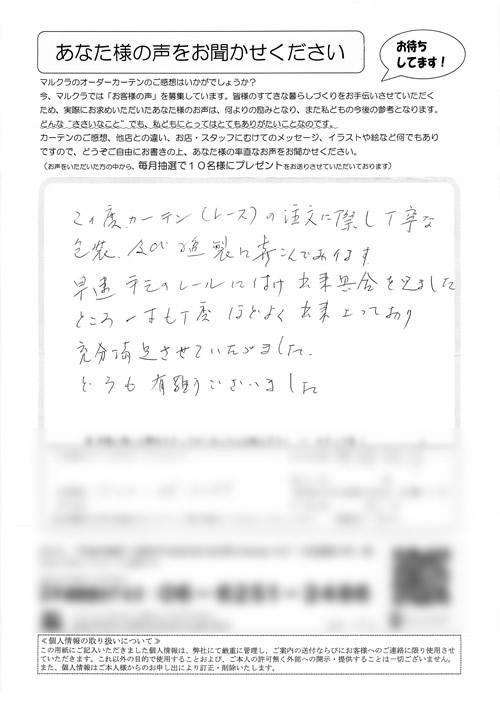 あなた様の声をお聞かせください
お待ち
してます！
マルクラのオーダーカーテンのご感想はいかがでしょうか？
今、マルクラでは「お客様の声」を募集しています。皆様のすてきな暮らしづくりをお手伝いさせていただく
ため、実際にお求めいただいたあなた様のお声は、何よりの励みとなり、また私どもの今後の参考となります。
どんな“ささいなこと”でも、私どもにとってはとてもありがたいことなのです。
カーテンのご感想、他店との違い、お店・スタッフにむけてのメッセージ、イラストや絵など何でもあり
ですので、どうぞご自由にお書きの上、あなた様の率直なお声をお聞かせください。
（お声をいただいた方の中から、毎月抽選で１０名様にプレゼントをお送りさせていただいております）
この度カーテン(レース)の注文に際し丁寧な
包装、及び縫製に喜こんでおります
早速 手モのレールにはけ 出来具合を見ました
ところ 一寸も丁度 ほどよく 出来上っており
充分満足させていただきました.
どうも有難うございました
≪個人情報の取り扱いについて≫
この用紙にご記入いただきました個人情報は、弊社にて厳重に管理し、ご案内の送付ならびにお客様へのご連絡に限り使用させ
ていただきます。これ以外の目的で使用することおよび、ご本人の許可無く外部への開示・提供することは一切ございません。
また、個人情報はご本人様からのお申し出により訂正・削除いたします。